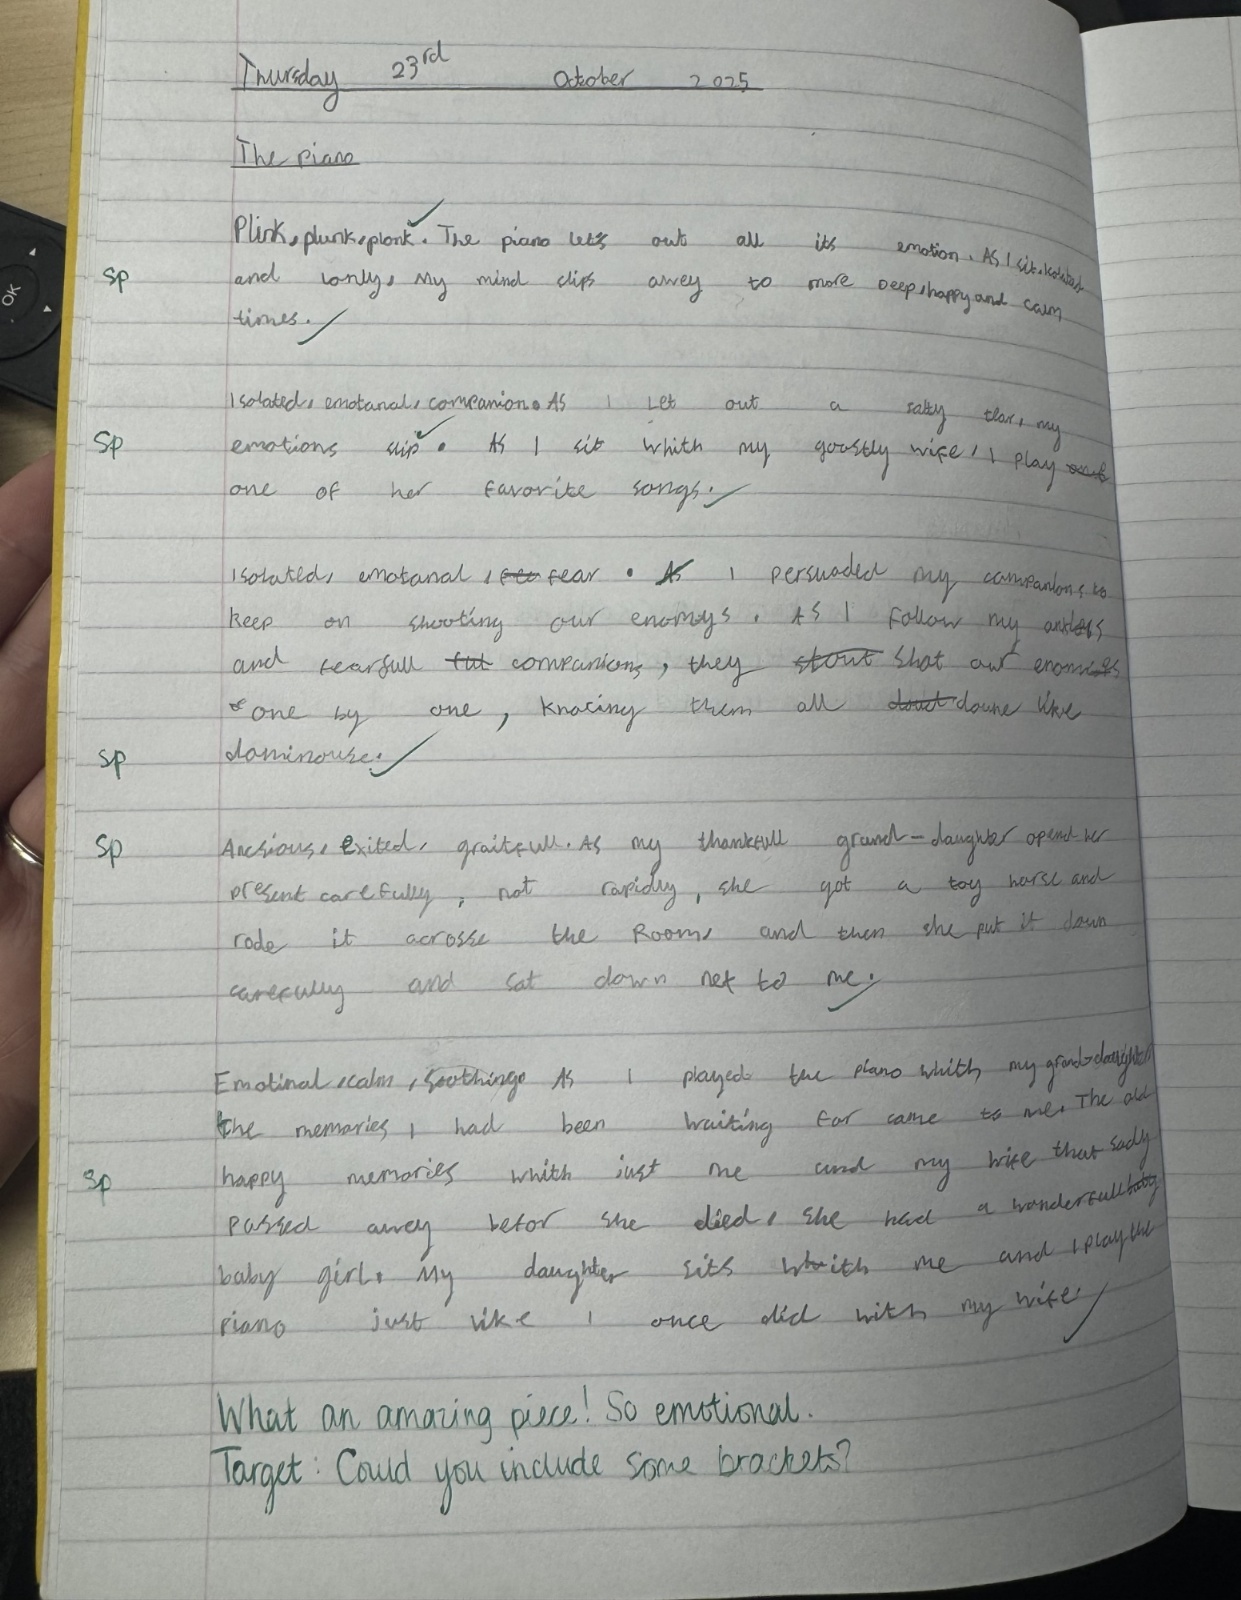 Thursday 23rd October 2025
The piano
Plink, plunk, plonk. The piano let's out all its emotion. As I sit, isolated
sp and lonly, My mind slips awey to more deep, happy and calm
times.
Isolated, emotanal, companion. As I Let out a salty tear, my
sp emotions slip. As I sit whith my goostly wife, I play
one of her favorite songs.
Isolated, emotanal, fear. I persuaded my companions to
keep on shooting our enomys. As I follow my
and fearfull companions, they shot our
one by one, knocing them all doune like
sp dominouse.
sp Ancsious, exited, graitfull. As my thankfull grand-daughter opend her
present carefully, not rapidly, she got a toy horse and
rode it acrosse the Room, and then she put it down
carefully and sat down net to me.
Emotinal, calm, soothing. As I played the piano whith my
the memories I had been waiting for came to me. The old
sp happy memories whith just me and my wife that sadly
passed awey befor she died, she had a wonderfull
baby girl. My daughter sits whith me and I play the
piano just like I once did with my wife.
What an amazing piece! So emotional.
Target: Could you include some brackets?
OK